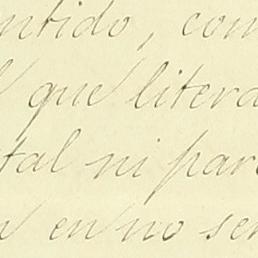 ntido, com
que litera
tal ni para
en no ser